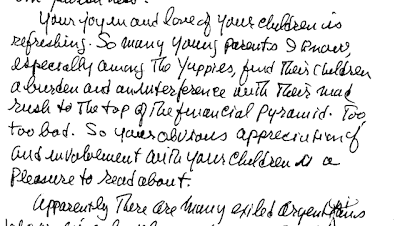 Your joy in and love of your children is
refreshing. So many young parents I know,
especially among the Yuppies, find their children
a burden and an interference with their mad
rush to the top of the financial pyramid. Too,
too bad. So your obvious appreciation of
and involvement with your children is a
pleasure to read about.
Apparently there are many exiled Argentinians